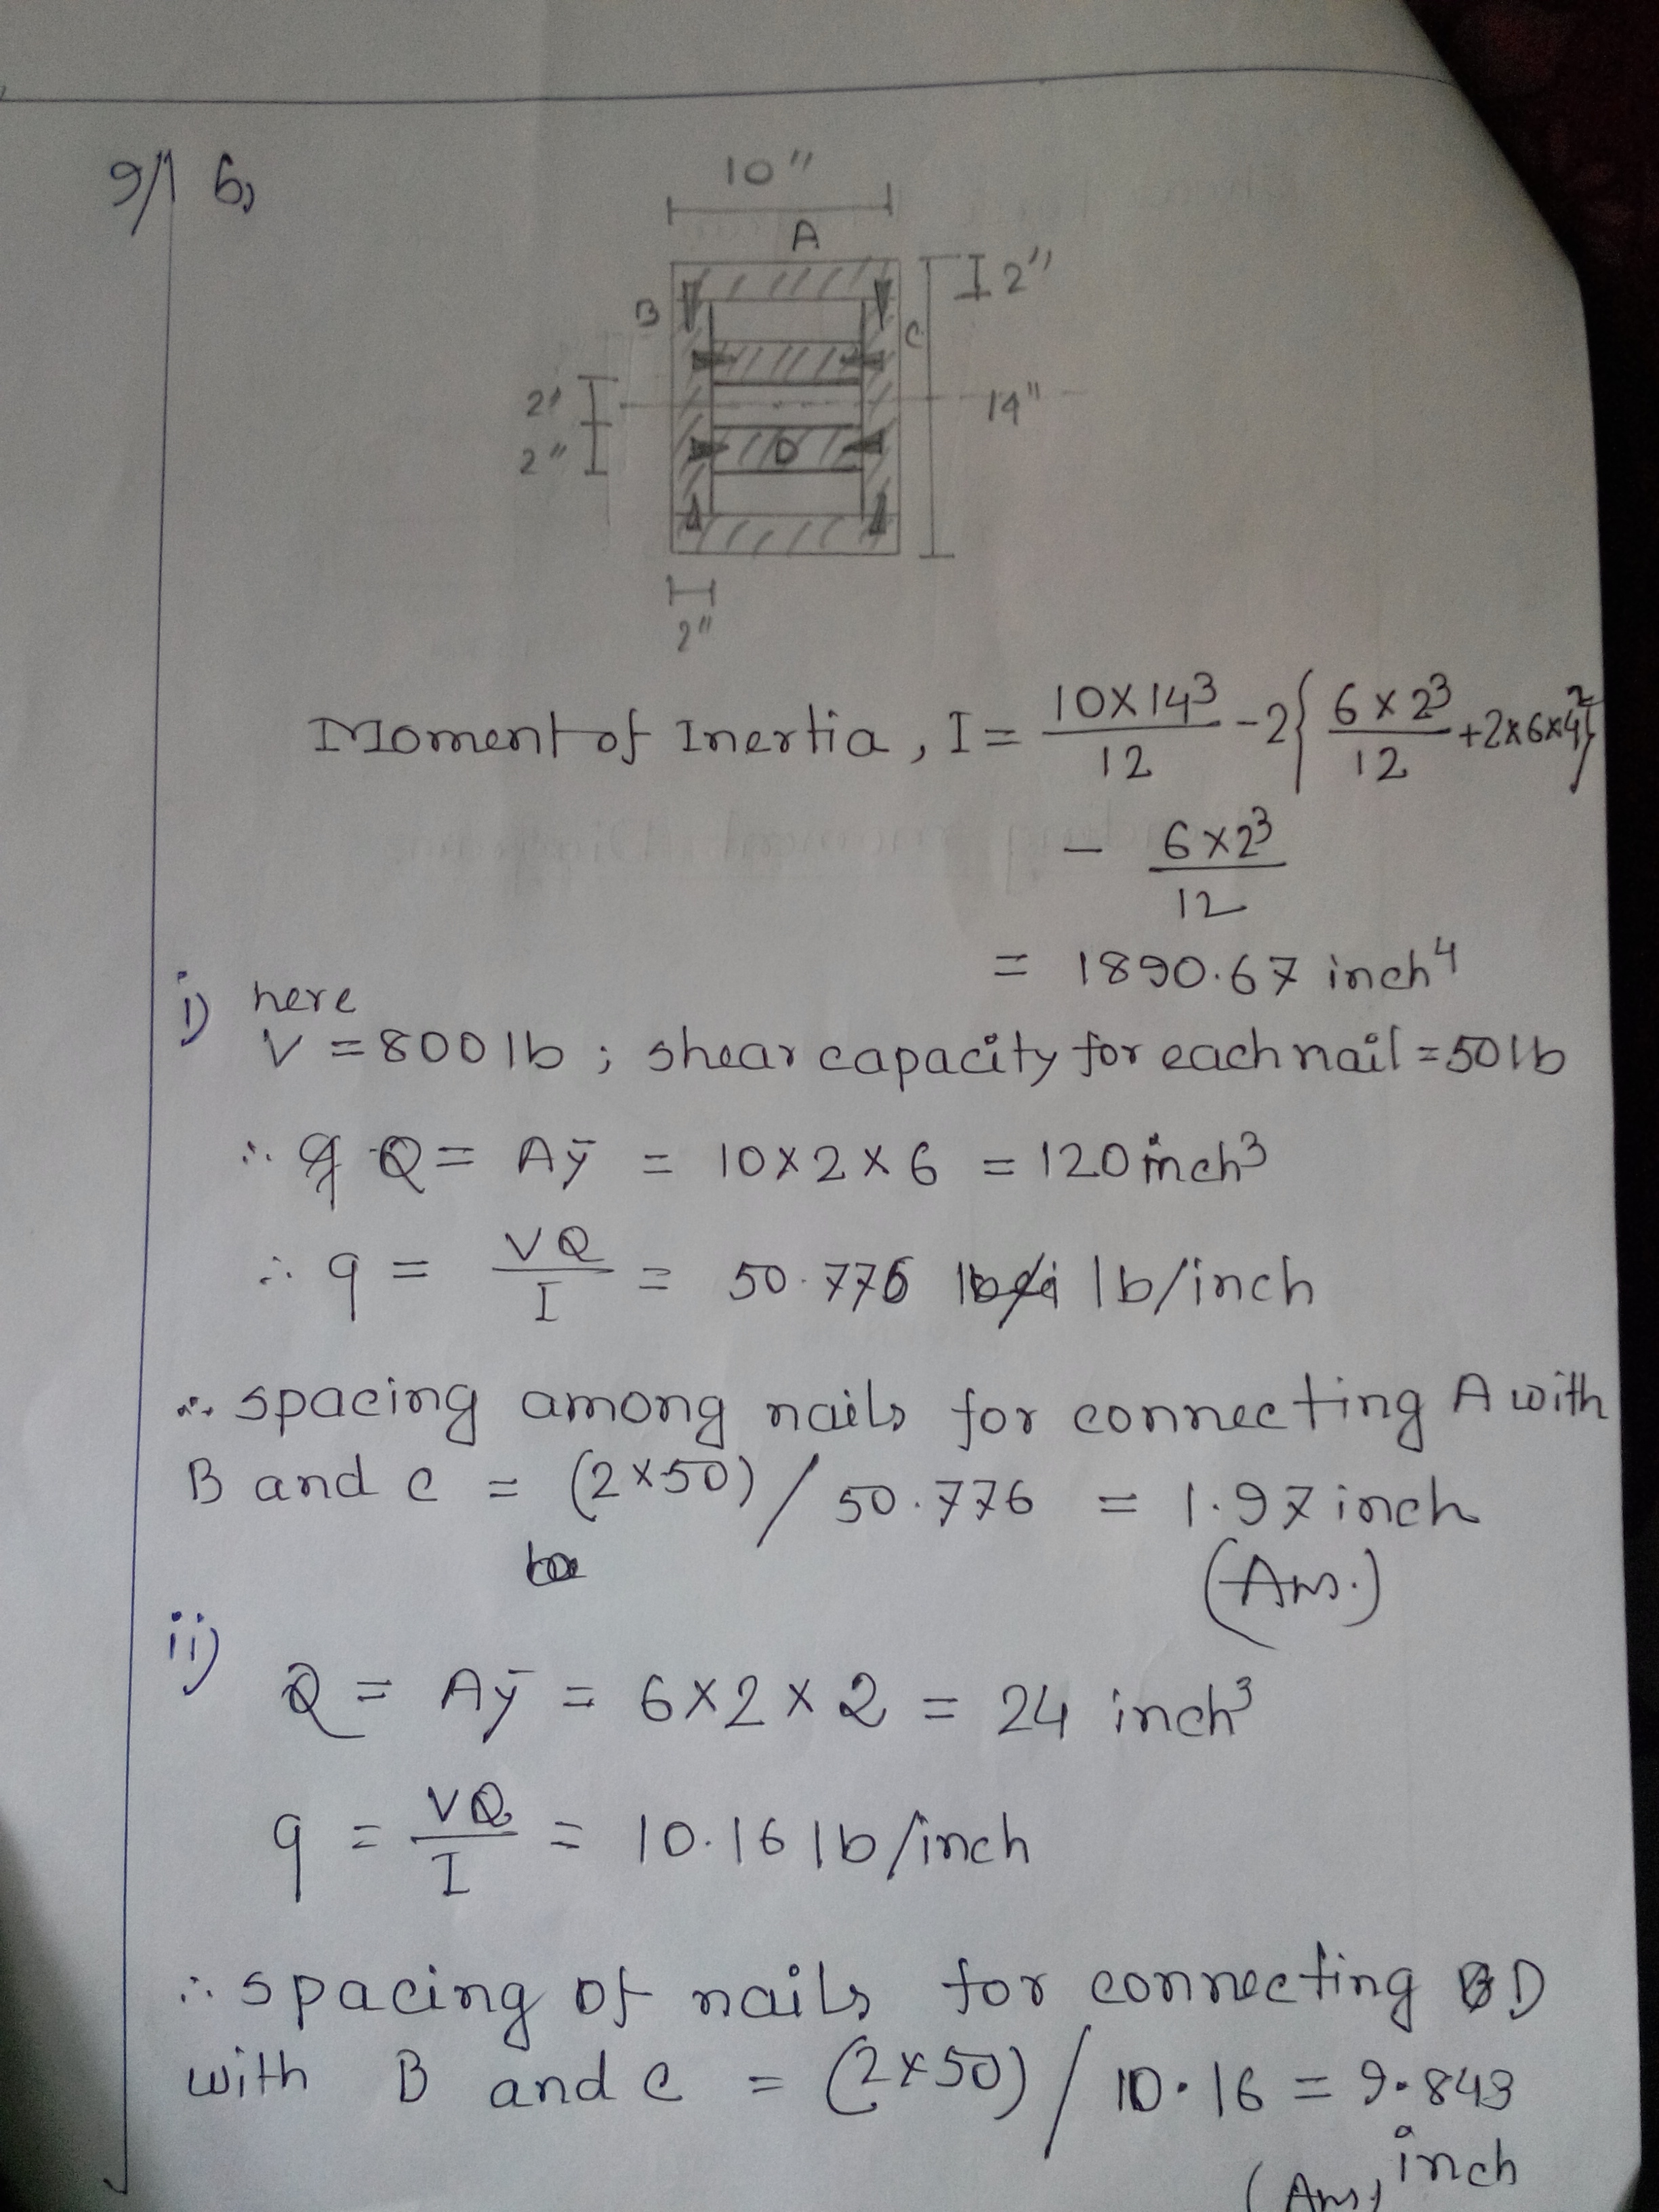 9/1 6,
10"
A
2"
B
C
2"
14"
2"
D
2"
Moment of Inertia, I = 10×14³/12 - 2{6×2³/12 + 2×6×4²}
- 6×2³/12
= 1890.67 inch⁴
i) here
V = 800 lb ; shear capacity for each nail = 50 lb
∴ Q = Aȳ = 10×2×6 = 120 inch³
∴ q = VQ/I = 50.776 lb/inch
∴ spacing among nails for connecting A with
B and C = (2×50)/50.776 = 1.97 inch
(Ans.)
ii)
Q = Aȳ = 6×2×2 = 24 inch³
q = VQ/I = 10.16 lb/inch
∴ spacing of nails for connecting D
with B and C = (2×50)/10.16 = 9.843
inch
(Ans)